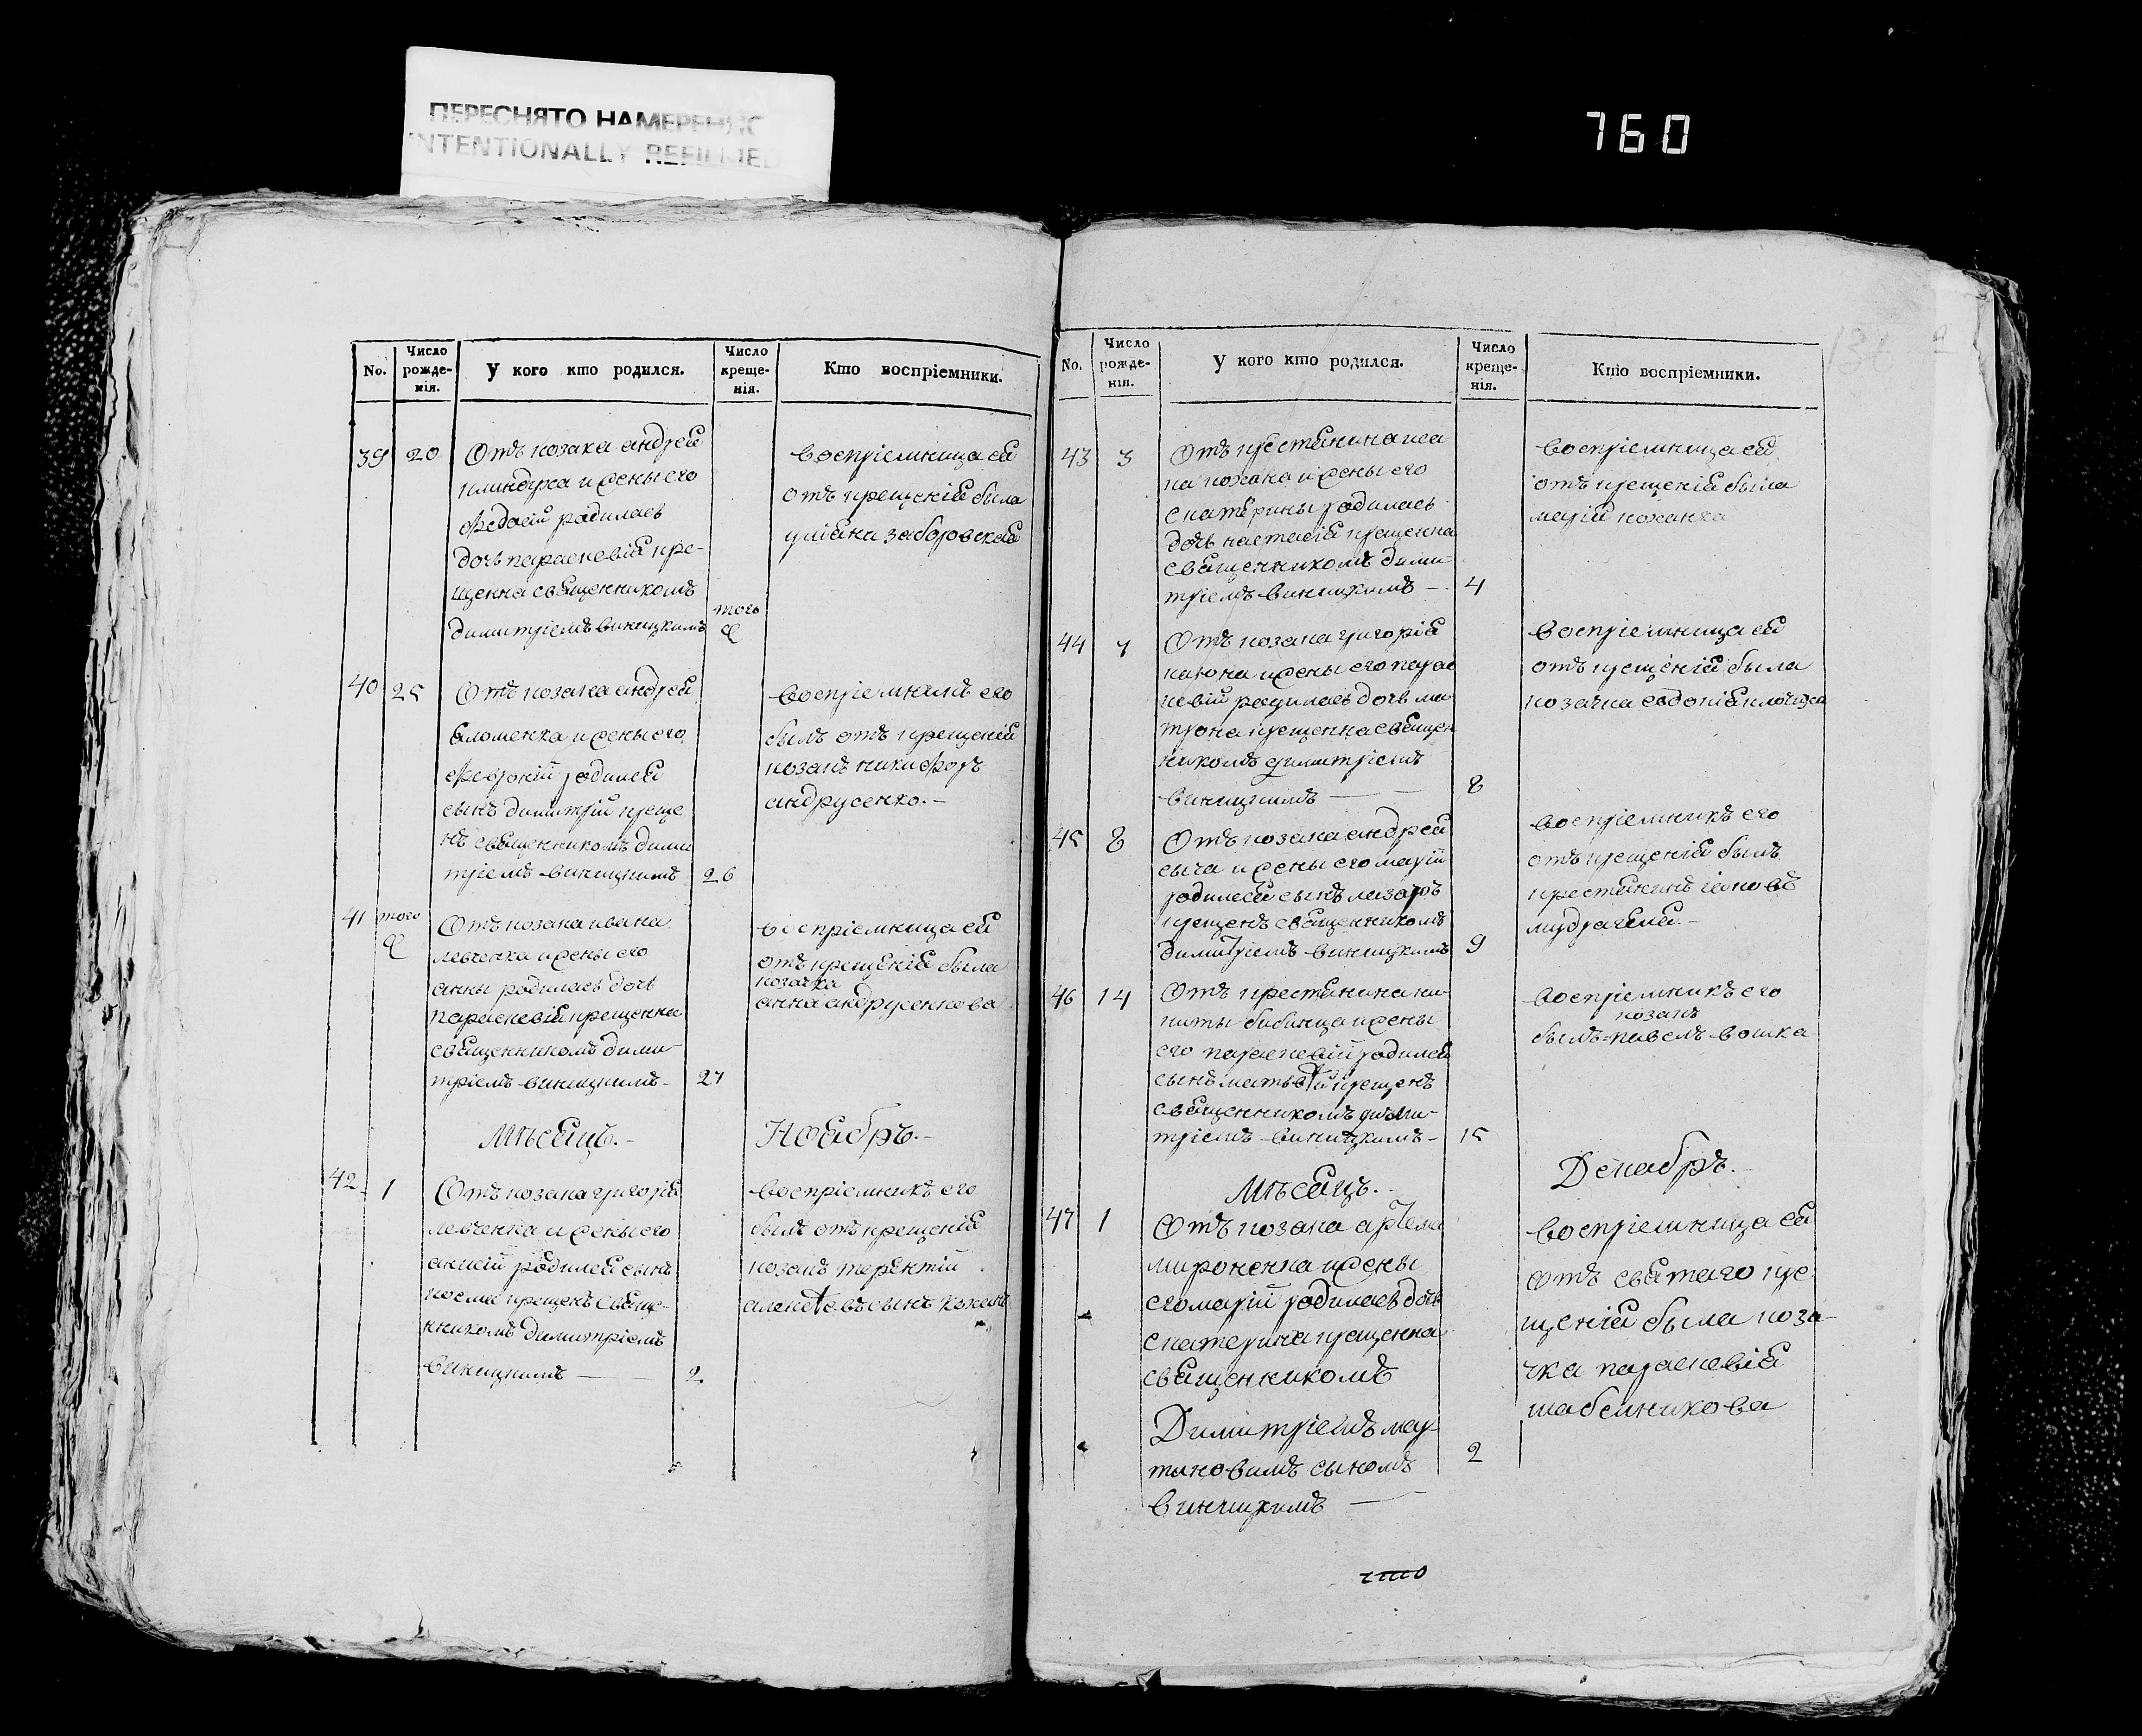 ПЕРЕСНЯТО НАМЕРЕННО
INTENTIONALLY REFILMED
760
No.
Число рожде-нія.
У кого кто родился.
Число креще-нія.
Кто воспріемники.
39 20
Отъ козака андрея
и жены его
родилась
дочь параскевія кре-
щенна священникомъ
димитріемъ виницкимъ
того
воспріемница ей
отъ крещенія была
уліяна заборовская
40 25
Отъ козака андрея
и жены его
родился
сынъ димитрій креще
нъ священникомъ дими
тріемъ виницкимъ 26
воспріемникъ его
былъ отъ крещенія
козакъ никифоръ
андрусенко.-
41 того
Отъ козака ивана
левченка и жены его
анны родилась дочь
параскевія крещенна
священникомъ дими-
тріемъ виницкимъ- 27
воспріемница ей
отъ крещенія была
козачка
анна андрусенкова
Мѣсяцъ.- Ноябрь.-
42 1
Отъ козака григорія
левченка и жены его
родился сынъ
косма крещенъ свяще-
нникомъ димитріемъ
виницкимъ — 2
воспріемникъ его
былъ отъ крещенія
козакъ терентій
сынъ
No.
Число рожде-нія.
У кого кто родился.
Число креще-нія.
Кто воспріемники.
43 3
Отъ крестянина иса
ка кожана и жены его
екатерины родилась
дочь настасія крещенна
священникомъ дими
тріемъ виницкимъ — 4
воспріемница ей
отъ крещенія была
марія кожанка
44 7
Отъ козака григорія
и жены его парас
кевіи родилась дочь ма
трона крещенна священ
никомъ димитріемъ
виницкимъ — 8
воспріемница ей
отъ крещенія была
козачка евдокія
45 8
Отъ козака андрея
сыча и жены его маріи
родился сынъ лазарь
крещенъ священникомъ
димитріемъ виницкимъ 9
воспріемникъ его
отъ крещенія былъ
крестянинъ іяковъ
46 14
Отъ крестянина ни-
киты и жены
его параскевіи родился
сынъ матвѣй крещенъ
священникомъ дими-
тріемъ виницкимъ- 15
воспріемникъ его
козакъ
былъ=павелъ вошка
Мѣсяцъ.- Декабрь.-
47 1
Отъ козака артема
мироненка и жены
его маріи родилась дочь
екатерина крещенна
священникомъ
Димитріемъ мар-
тиновимъ сыномъ 2
виницкимъ —
воспріемница ей
отъ святаго кре
щенія была коза-
чка параскевія
шабелникова
что